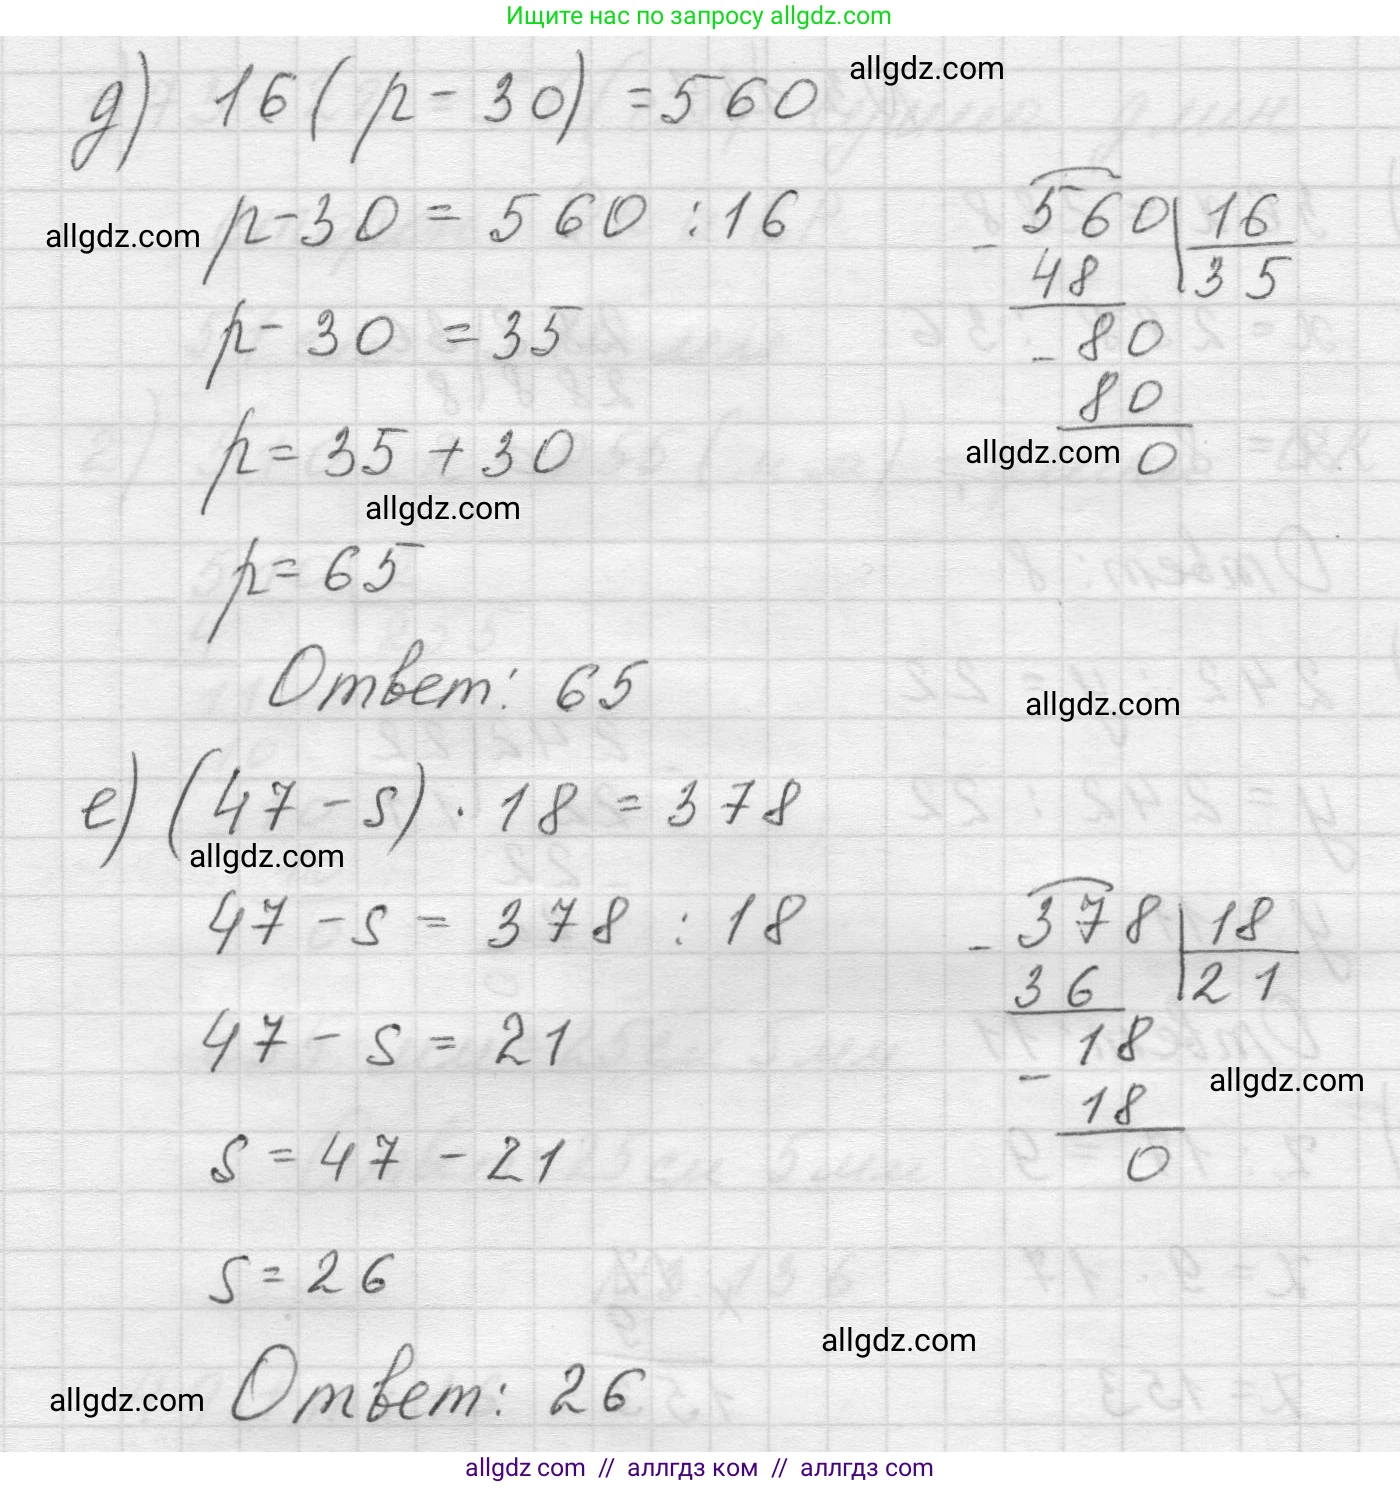 Ищите нас по запросу allgdz.com
allgdz.com
д) 16(p - 30) = 560
allgdz.com
p - 30 = 560 : 16
p - 30 = 35
p = 35 + 30
allgdz.com
p = 65
Ответ: 65
- 560 | 16
48 | 35
- 80
80
allgdz.com
0
allgdz.com
е) (47 - s) · 18 = 378
allgdz.com
47 - s = 378 : 18
47 - s = 21
s = 47 - 21
s = 26
- 378 | 18
36 | 21
- 18
allgdz.com
18
0
allgdz.com
allgdz.com
Ответ: 26
allgdz com // аллгдз ком // аллгдз com